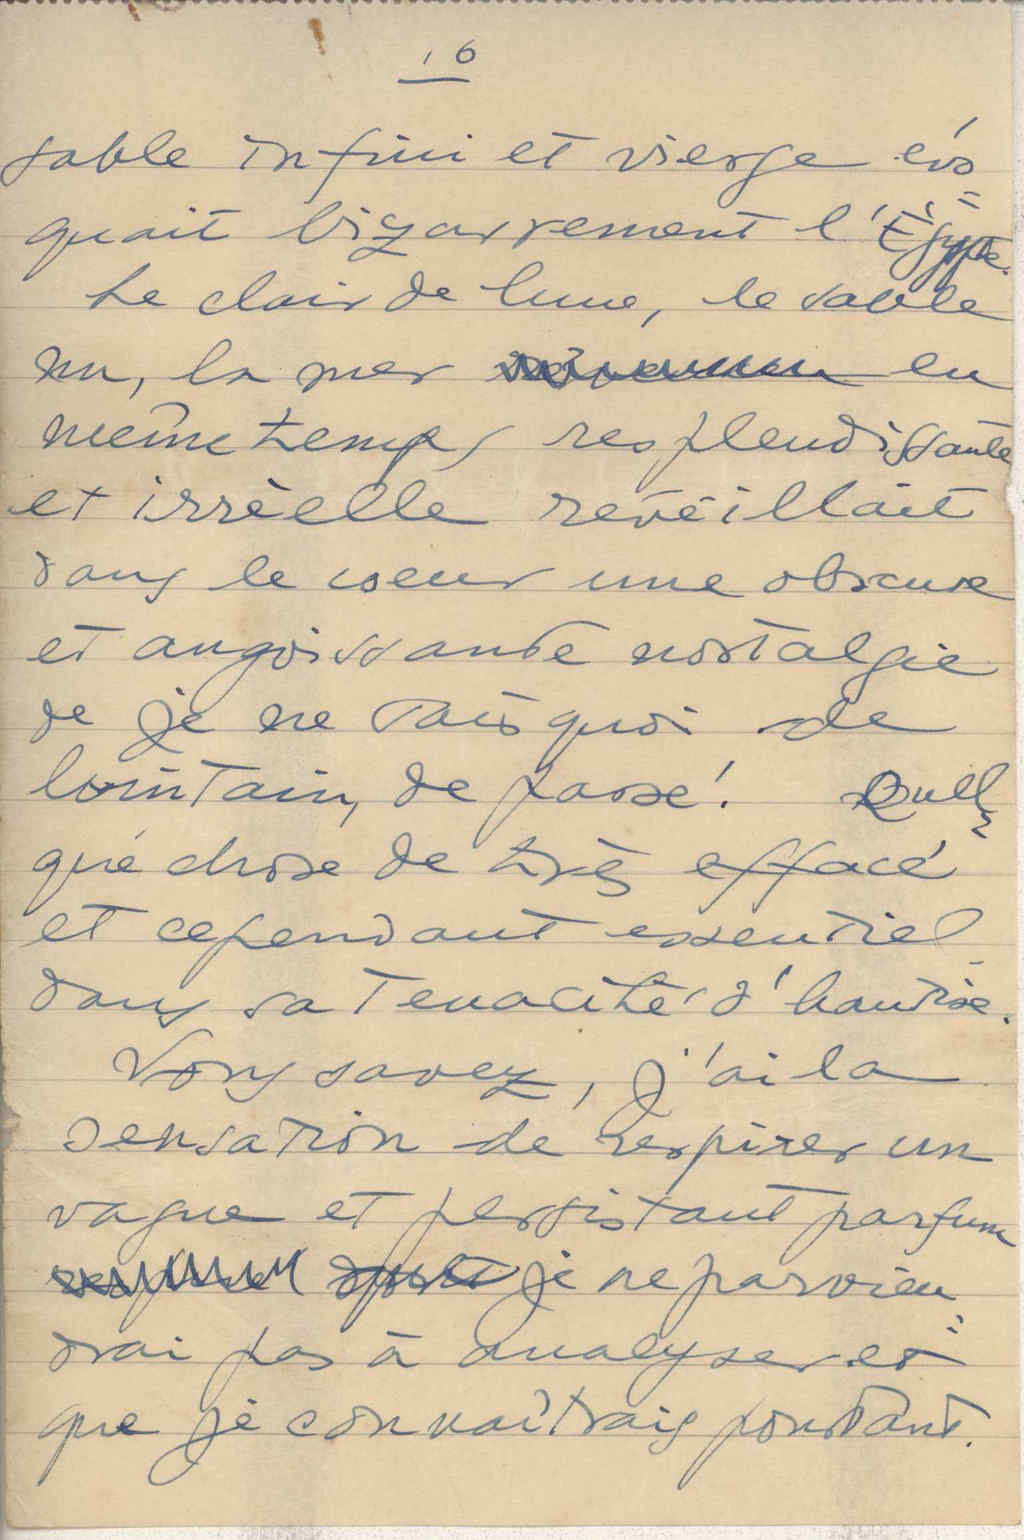 16
sable infini et vierge évo
quait bizarrement l'Égypte.
Le clair de lune, le sable
nu, la mer en
même temps resplendissante
et irréelle réveillait
dans le coeur une obscure
et angoissante nostalgie
de je ne sais quoi de
lointain, de passé! Quel
que chose de très effacé
et cependant essentiel
dans sa tenacité d'hantise.
Vous savez, j'ai la
sensation de respirer un
vague et persistant parfum
je ne parvien
drai pas à analyser et
que je connaîtrais pourtant.